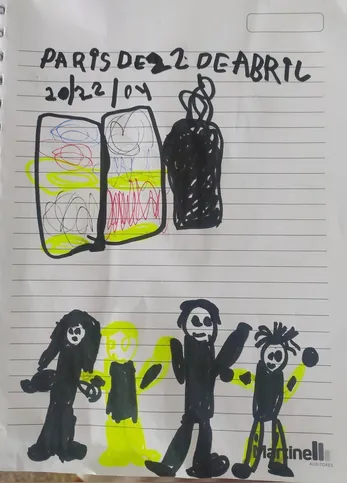 PARIS DE 22 DE ABRIL
20/22/04
Martinelli
AUDITORES